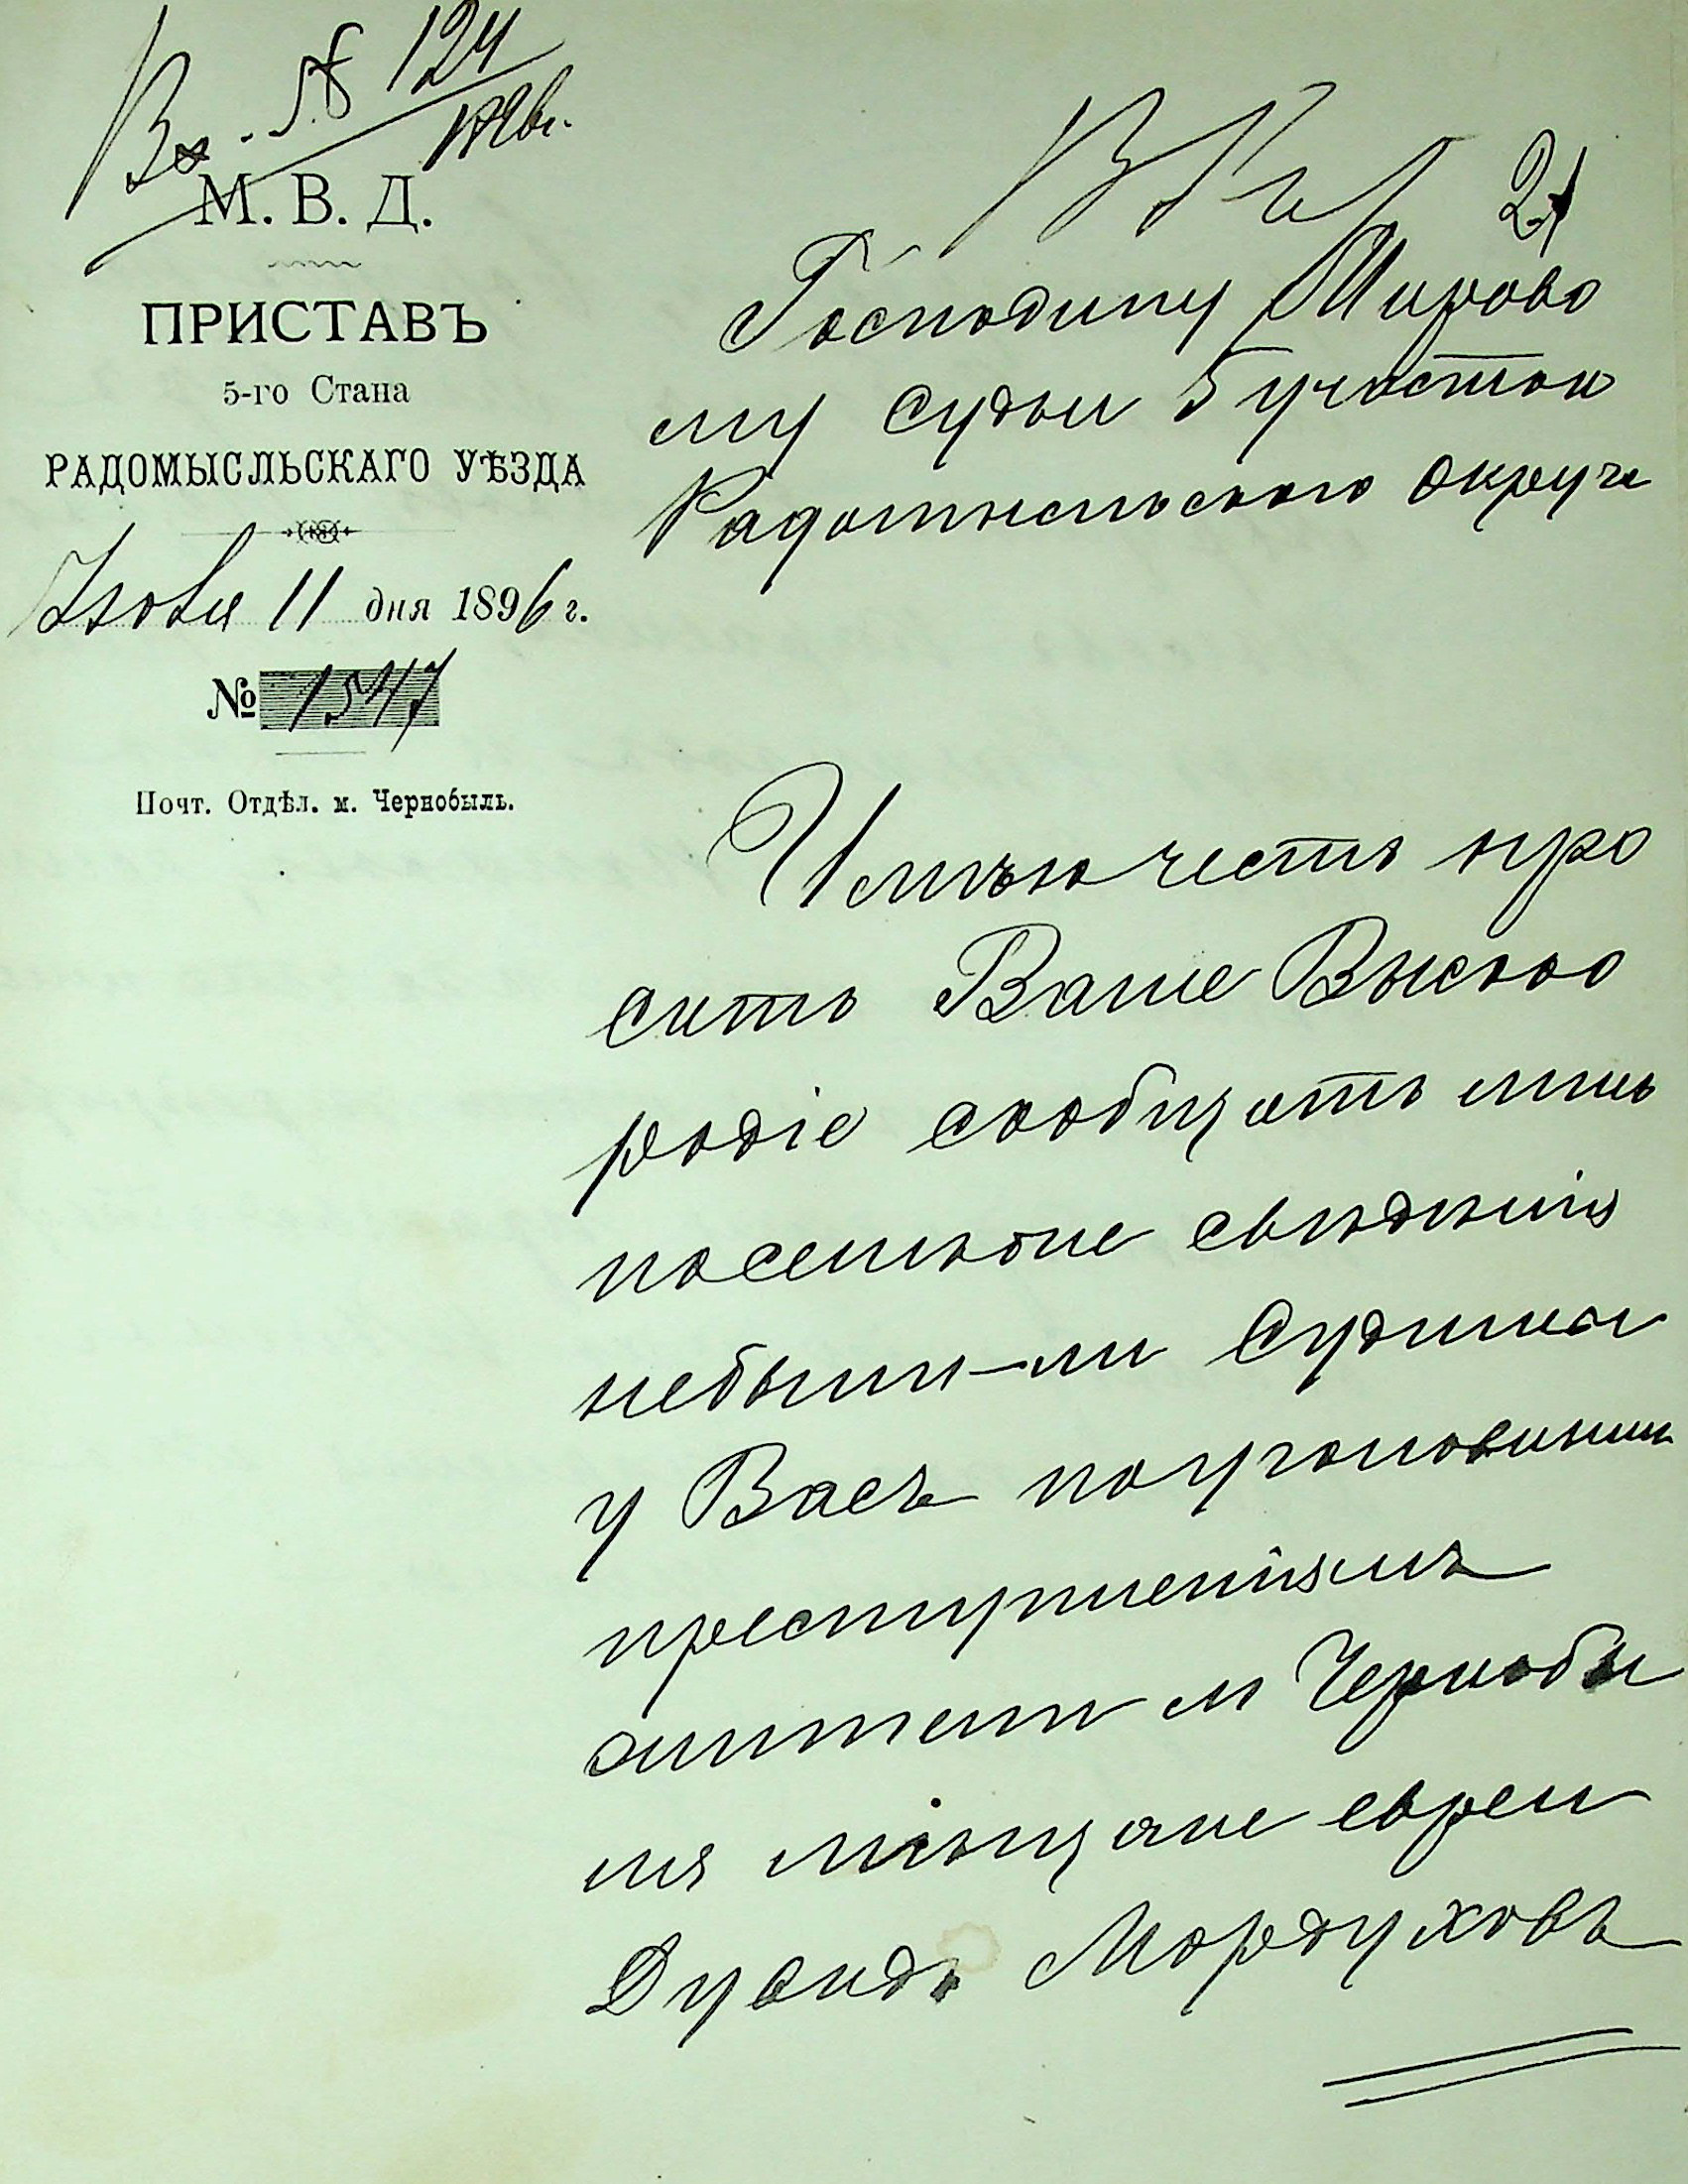 Вх. № 124
1896г.
М. В. Д.
ПРИСТАВЪ
5-го Стана
РАДОМЫСЛЬСКАГО УѢЗДА
Іюля 11 дня 1896 г.
№ 1547
Почт. Отдѣл. м. Чернобыль.
21
Господину Мирово
му Судьи 5 участка
Радомысльскаго Округа
Имѣю честь про
сить Ваше Высоко
родіе сообщить мнѣ
посемъ свѣденія
небыли-ли Судимы
у Васъ поуголовнымъ
преступленіямъ
жители м Чернобы
ля мѣщане евреи
Дувидъ Мордуховъ